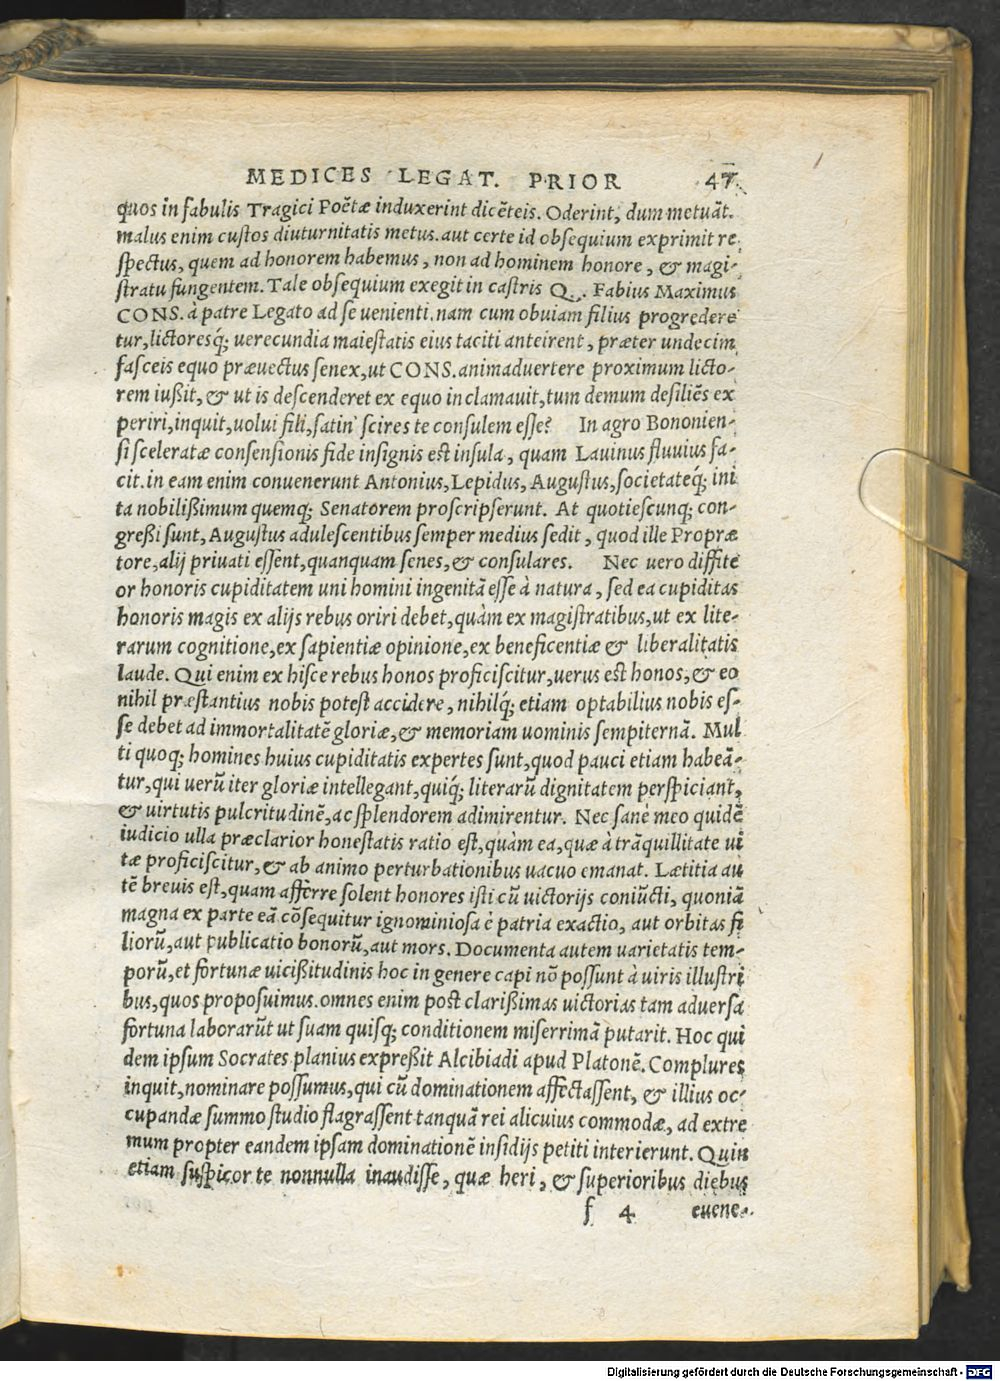 MEDICES LEGAT. PRIOR 47
quos in fabulis Tragici Poëtæ induxerint dicẽteis. Oderint, dum metuãt.
malus enim custos diuturnitatis metus. aut certe id obsequium exprimit re,
spectus, quem ad honorem habemus, non ad hominem honore, & magi-
stratu fungentem. Tale obsequium exegit in castris Q. Fabius Maximus
CONS. à patre Legato ad se uenienti. nam cum obuiam filius progredere
tur, lictoresq́; uerecundia maiestatis eius taciti anteirent, præter undecim
fasceis equo præuectus senex, ut CONS. animaduertere proximum licto-
rem iußit, & ut is descenderet ex equo inclamauit, tum demum desiliẽs ex
periri, inquit, uolui fili, satin' scires te consulem esse? In agro Bononien-
si sceleratæ consensionis fide insignis est insula, quam Lauinus fluuius fa-
cit. in eam enim conuenerunt Antonius, Lepidus, Augustus, societateq́; ini
ta nobilißimum quemq; Senatorem proscripserunt. At quotiescunq; con-
greßi sunt, Augustus adulescentibus semper medius sedit, quod ille Propræ
tore, alij priuati essent, quanquam senes, & consulares. Nec uero diffite
or honoris cupiditatem uni homini ingenitã esse à natura, sed ea cupiditas
honoris magis ex alijs rebus oriri debet, quàm ex magistratibus, ut ex lite-
rarum cognitione, ex sapientiæ opinione, ex beneficentiæ & liberalitatis
laude. Qui enim ex hisce rebus honos proficiscitur, uerus est honos, & eo
nihil præstantius nobis potest accidere, nihilq́; etiam optabilius nobis es-
se debet ad immortalitatẽ gloriæ, & memoriam uominis sempiternã. Mul
ti quoq; homines huius cupiditatis expertes sunt, quod pauci etiam habeã-
tur, qui uerũ iter gloriæ intellegant, quiq́; literarũ dignitatem perspiciant,
& uirtutis pulcritudinẽ, ac splendorem adimirentur. Nec sanè meo quidẽ
iudicio ulla præclarior honestatis ratio est, quàm ea, quæ à trãquillitate ui
tæ proficiscitur, & ab animo perturbationibus uacuo emanat. Lætitia au
tẽ breuis est, quam afferre solent honores isti cũ uictorijs coniũcti, quoniã
magna ex parte eã cõsequitur ignominiosa è patria exactio, aut orbitas fi
liorũ, aut publicatio bonorũ, aut mors. Documenta autem uarietatis tem-
porũ, et fortunæ uicißitudinis hoc in genere capi nõ possunt à uiris illustri
bus, quos proposuimus. omnes enim post clarißimas uictorias tam aduersa
fortuna laborarũt ut suam quisq; conditionem miserrimã putarit. Hoc qui
dem ipsum Socrates planius expreßit Alcibiadi apud Platonẽ. Complures
inquit, nominare possumus, qui cũ dominationem affectassent, & illius oc-
cupandæ summo studio flagrassent tanquã rei alicuius commodæ, ad extre
mum propter eandem ipsam dominationẽ insidijs petiti interierunt. Quin
etiam suspicor te nonnulla inaudisse, quæ heri, & superioribus diebus
f 4 euene-
Digitalisierung gefördert durch die Deutsche Forschungsgemeinschaft - DFG